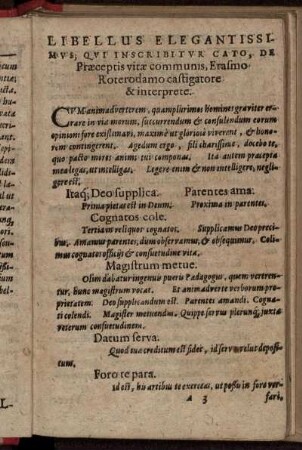 LIBELLUS ELEGANTISSI-
MVS, QVI INSCRIBITVR CATO, DE
Præceptis vitæ communis, Erasmo
Roterodamo castigatore
& interprete.
CVM animadverterem, quamplurimos homines graviter er-
rare in via morum, succurrendum & consulendum eorum
opinioni fore existimavi, maximè ut gloriosè viverent, & hono-
rem contingerent. Agedum ergo, fili charissime, docebo te,
quo pacto mores animi tui componas. Ita autem præcepta
mea legas, ut intelligas. Legere enim & non intelligere, negli-
gere est.
Itaq; Deo supplica. Parentes ama:
Prima pietas est in Deum. Proxima in parentes.
Cognatos cole.
Tertia in reliquos cognatos. Supplicamus Deo preci-
bus. Amamus parentes, dum observamus, & obsequimur. Coli-
mus cognatos officijs & consuetudine vitæ.
Magistrum metue.
Olim dabatur ingenuo puero Pædagogus, quem vereren-
tur, hunc magistrum vocat. Et animadverte verborum pro-
prietatem: Deo supplicandum est. Parentes amandi. Cogna-
ti colendi. Magister metuendus. Quippe servus plerunq; juxta
veterum consuetudinem.
Datum serva:
Quod tuæ creditum est fidei, id serva velut deposi-
tum.
Foro te para.
Id est, his artibus te exerceas, ut possis in foro ver-
A 3 sari,